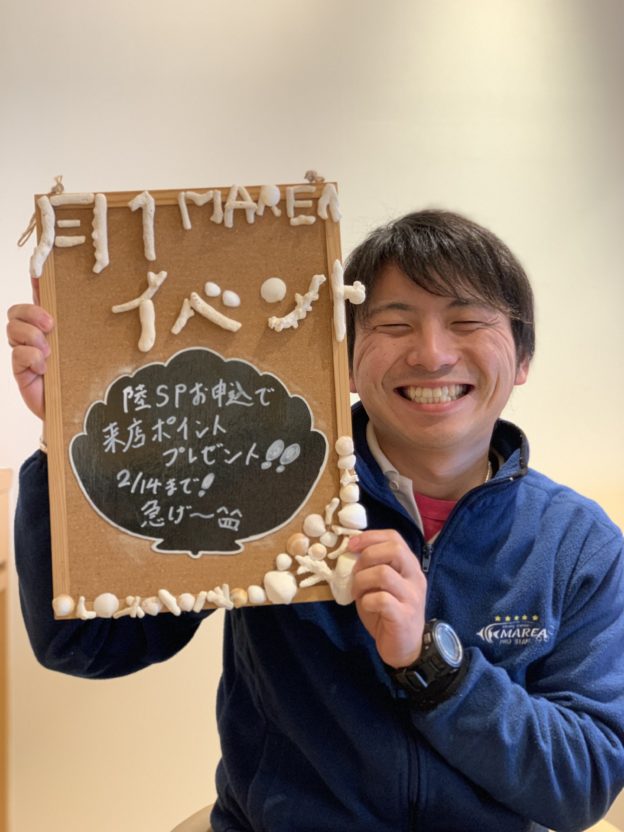 月1 MAREA
イベント
陸SPお申込で
来店ポイント
プレゼント!!
2/14まで!
急げ〜^^
MAREA
PRO STAFF